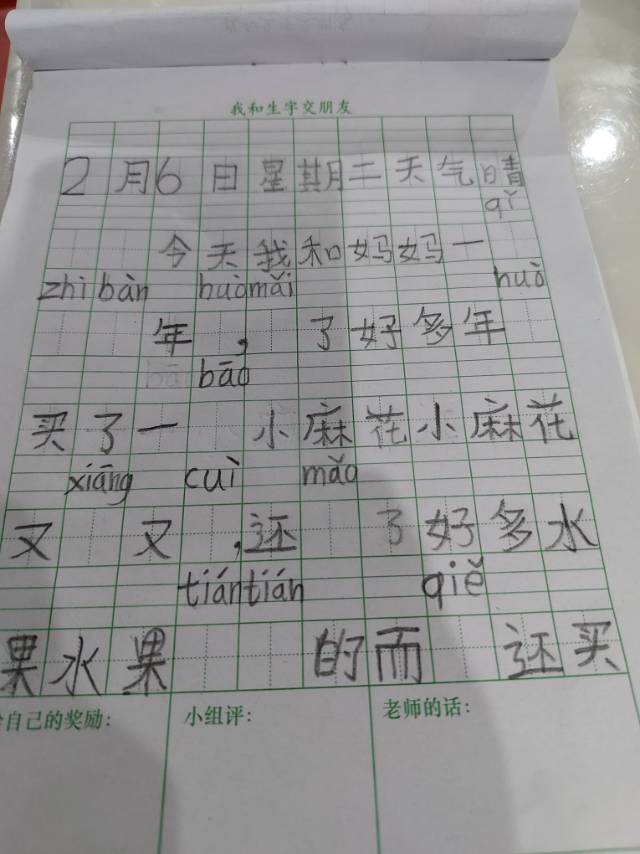 我和生字交朋友
2月6日星期二天气晴
qǐ
今天我和妈妈一
zhì bàn huò mǎi huò
年，了好多年
bāo
买了一 小麻花小麻花
xiāng cuì mǎo
又 又，还 了好多水
tián tián qiě
果水果 的而 还买
自己的奖励：
小组评：
老师的话：